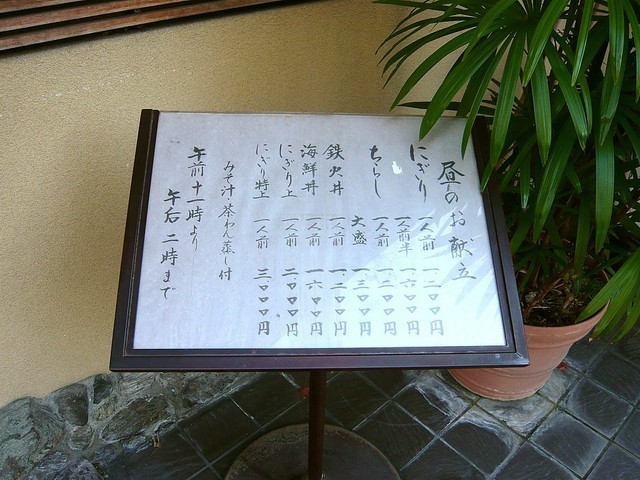 昼のお献立
にぎり 一人前 一二〇〇円
一人前半 一六〇〇円
ちらし 一人前 一二〇〇円
大盛 一三〇〇円
鉄火丼 一人前 一二〇〇円
海鮮丼 一人前 一六〇〇円
にぎり上 一人前 二〇〇〇円
にぎり特上 一人前 三〇〇〇円
みそ汁・茶わん蒸し付
午前十一時より
午后二時まで